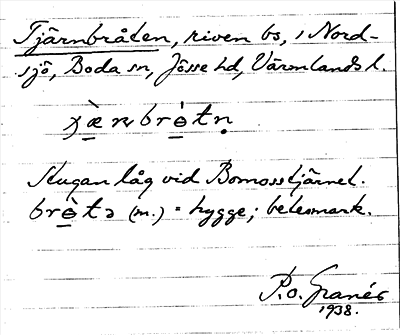 Tjärnbråten, riven bs, i Nord-
sjö, Boda sn, Jösse hd, Värmlands l.
Stugan låg vid Bomosstjärnet.
(m.) = hygge; betesmark.
P.O. Granér
1938.